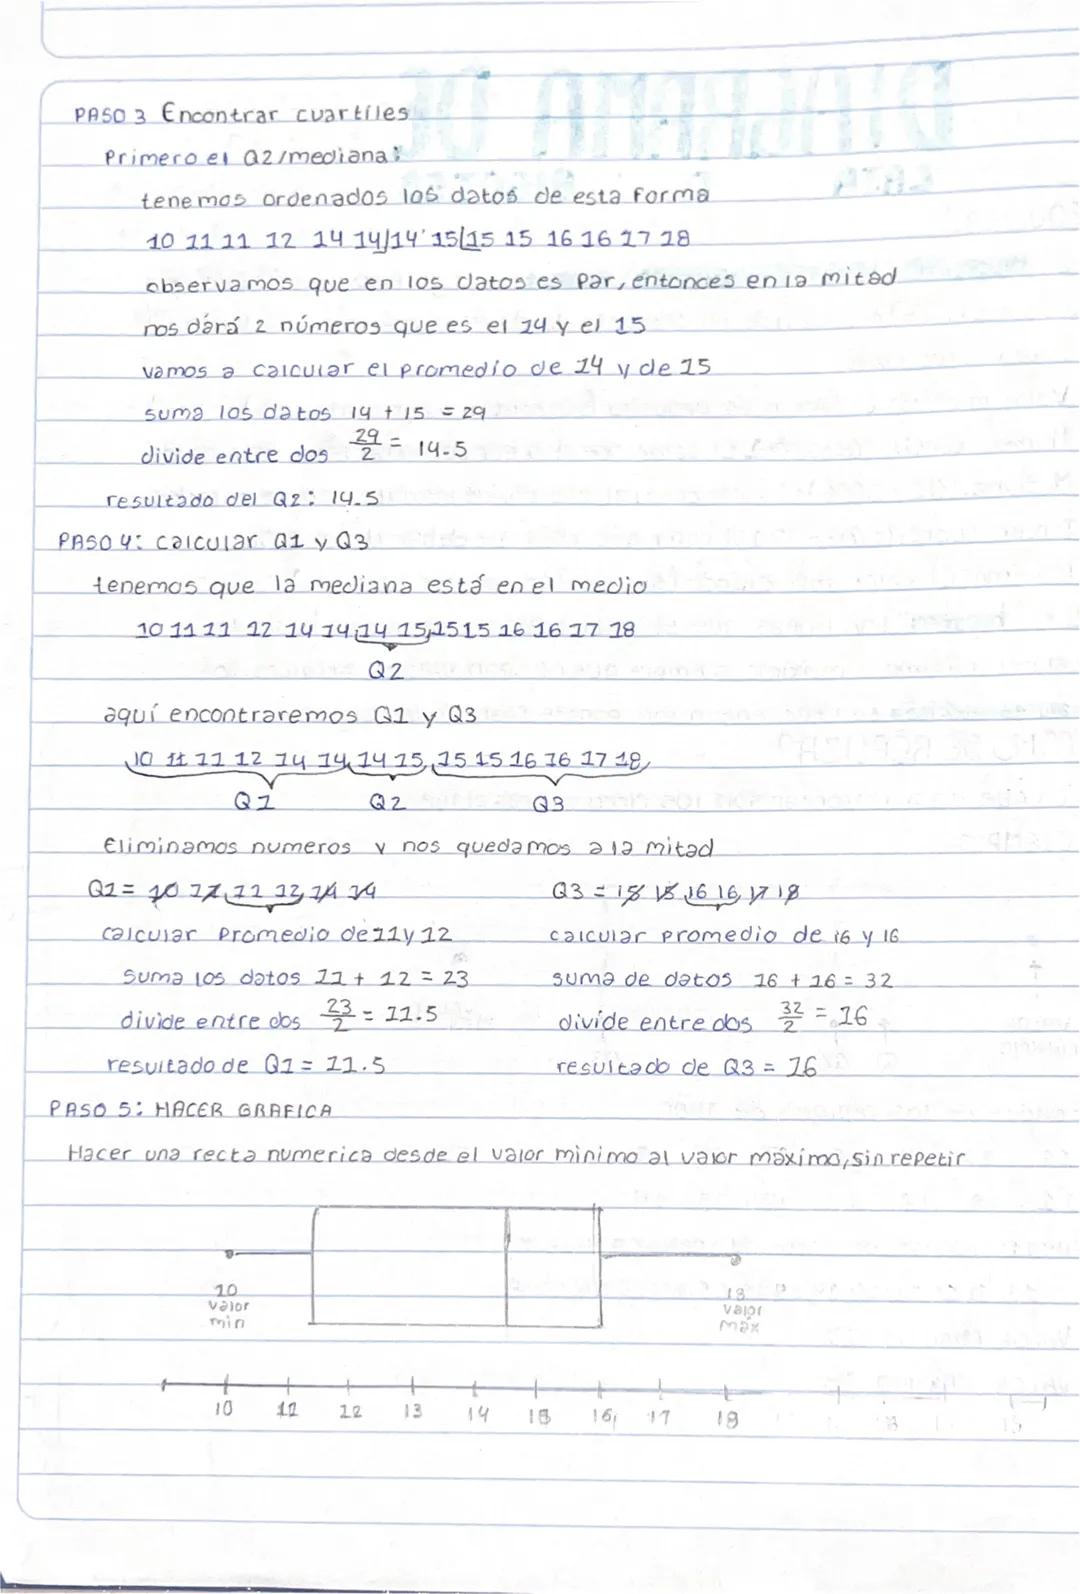 PASO 3 Encontrar cuartiles
Primero el Q2/mediana:
tenemos ordenados los datos de esta forma
10 11 11 12 14 14/14 15/15 15 16 16 17 18
observamos que en los datos es Par, entonces en la mitad
nos dará 2 números que es el 14 y el 15
vamos a calcular el promedio de 14 y de 15
suma los datos 14 + 15 = 29
divide entre dos 29/2 = 14.5
resultado del Q2: 14.5
PASO 4: calcular Q1 y Q3
tenemos que la mediana está en el medio
10 11 11 12 14 14 14 15 15 15 16 16 17 18
Q2
aquí encontraremos Q1 y Q3
10 11 11 12 14 14 14 15 15 15 16 16 17 18
Q1 Q2 Q3
Eliminamos numeros y nos quedamos a la mitad
Q1 = 10 11 11 12 14 14
calcular promedio de 11 y 12
suma los datos 11 + 12 = 23
divide entre dos 23/2 = 11.5
resultado de Q1 = 11.5
Q3 = 15 15 16 16 17 18
calcular promedio de 16 y 16
suma de datos 16 + 16 = 32
divide entre dos 32/2 = 16
resultado de Q3 = 16
PASO 5: HACER GRAFICA
Hacer una recta numerica desde el valor minimo al valor máximo, sin repetir
10
valor
min
18
valor
máx
10 11 12 13 14 15 16 17 18